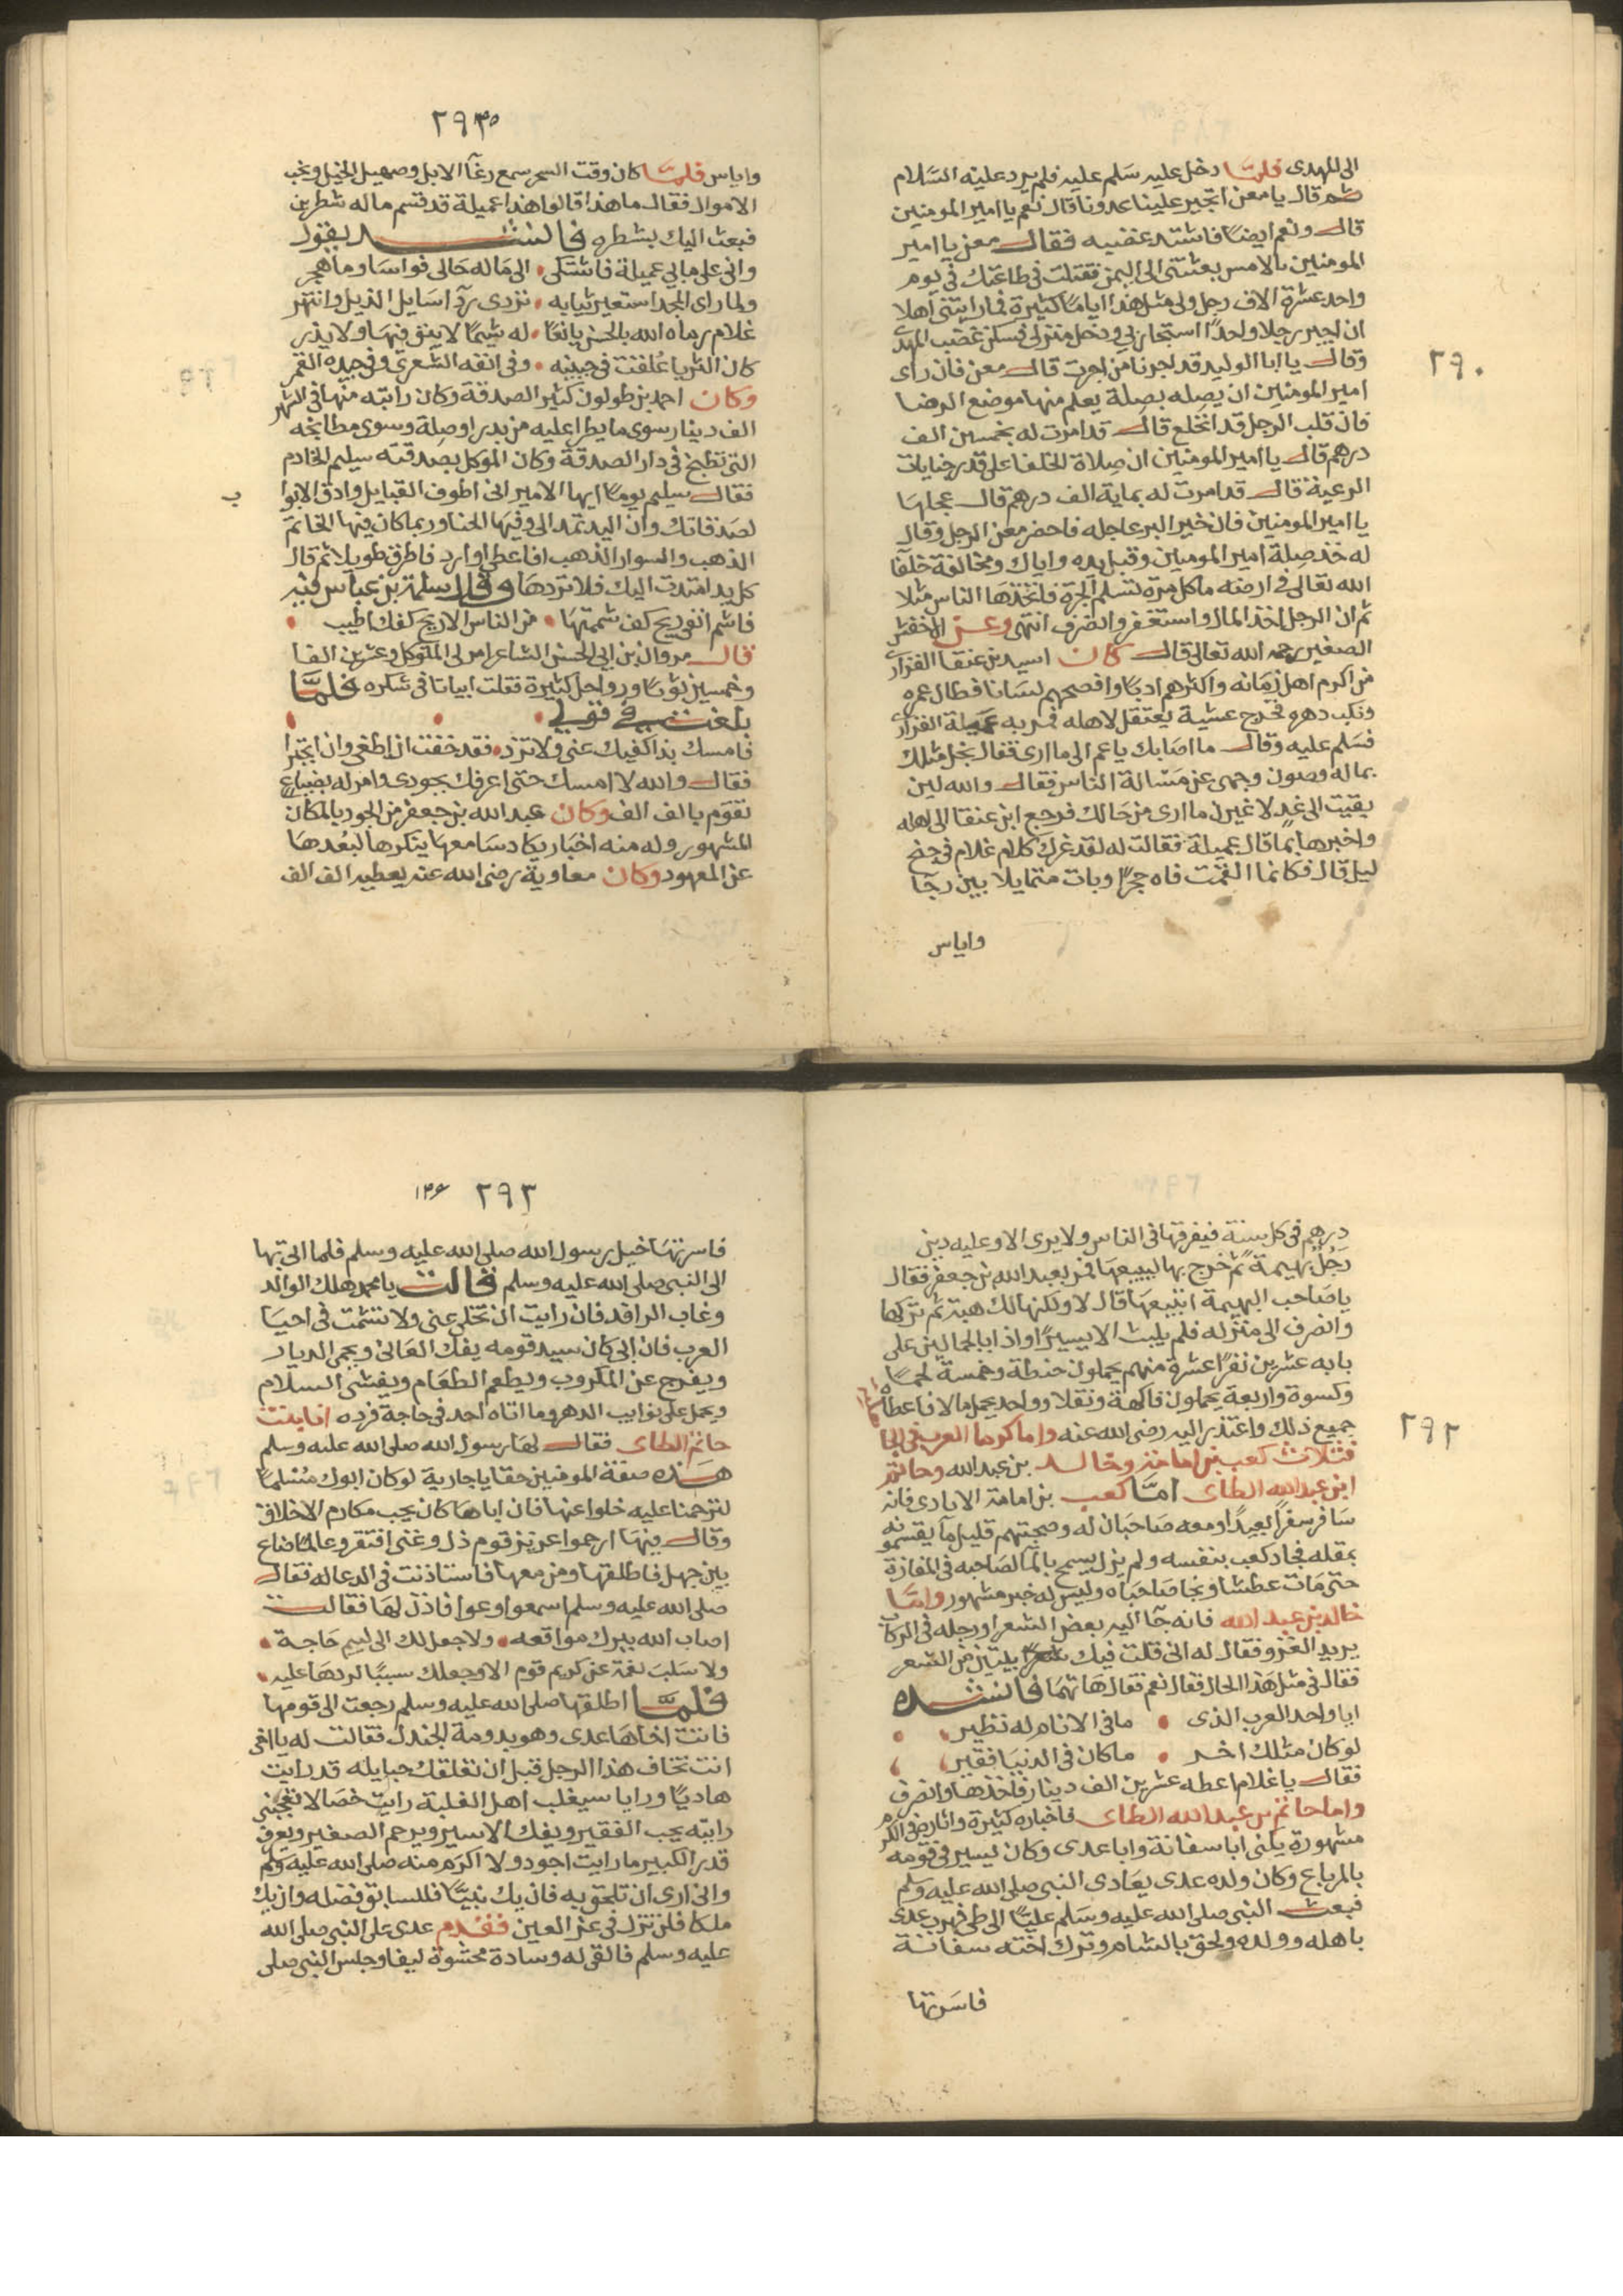 ٢٩٠
الى المهدى فلما دخل عليه سلم عليه فلم يرد عليه السلام
ثم قال يا معن اتجير علينا عدونا قال نعم يا امير المومنين
قال ونعم ايضا فاشتد غضبه فقال معن يا امير
المومنين بالامس بعثتنى الى اليمن فقتلت فى طاعتك فى يوم
واحد عشرة الاف رجل ولى مثل هذا اياما كثيرة فما رايتنى اهلا
ان اجير رجلا واحدا استجار بى ودخل منزلى فسكن غضب المهدى
وقال يا ابا الوليد قد اجرنا من اجرت قال معن فان راى
امير المومنين ان يصله بصلة يعلم منها موضع الرضا
فان قلب الرجل قد انخلع قال قد امرت له بخمسين الف
درهم قال يا امير المومنين ان صلاة الخلفا على قدر جنايات
الرعية قال قد امرت له بماية الف درهم قال عجلها
يا امير المومنين فان خير البر عاجله فاحضر معن الرجل وقال
له خذ صلة امير المومنين وقبل يده واياك ومخالفة خلفا
الله تعالى فى ارضه ما كل مرة تسلم الجرة فاتخذها الناس مثلا
ثم ان الرجل اخذ المال واستغفر وانصرف انتهى وعن الاخفش
الصغير رحمه الله تعالى قال كان اسيد بن عنقا الفزارى
من اكرم اهل زمانه واكثرهم ادبا وافصحهم لسانا فطال عمره
ونكب دهره فخرج عشية يعتقل لاهله فمر به عميلة الفزارى
فسلم عليه وقال ما اصابك يا عم الى ما ارى فقال بخل مثلك
بماله وصون وجهى عن مسالة الناس فقال والله لين
بقيت الى غد لاغيرن ما ارى من حالك فرجع ابن عنقا الى اهله
واخبرها بما قال عميلة فقالت له لقد غرك كلام غلام فى جنح
ليل قال فكانما القمت فاه حجرا وبات متمايلا بين رجا
واياس
٢٩٣٥
واياس فلما كان وقت السحر سمع رغا الابل وصهيل الخيل ونخب
الاموال فقال ما هذا قالوا هذا عميلة قد قسم ماله شطرين
فبعث اليك بشطره فانشد يقول
وانى على ما بى عميلة فاشتكى الى ماله حالى فواسا وما هجر
ولما راى المجد استعير ثيابه تردى ردآ اسايل الذيل واتزر
غلام رماه الله بالحسن يانعا له شيما لا ينق فيها ولا يذر
كان الثريا علقت فى جبينه وفى انفه الشعرى وفى جيده القمر
وكان احمد بن طولون كثير الصدقة وكان راتبه منها فى الشهر
الف دينار سوى ما يطرا عليه من بدر او صلة وسوى مطابخه
التى تطبخ فى دار الصدقة وكان الموكل بصدقته سيليم الخادم
فقال سيليم يوما ايها الامير انى اطوف القبايل وادق الابوا
ب
لصدقاتك وان اليد تمد الى وفيها الحنا وربما كان فيها الخاتم
الذهب والسوار الذهب افاعطى او ارد فاطرق طويلا ثم قال
كل يد امتدت اليك فلا تردها وقال سلمة بن عباس فيه
فاشم انفى ريح كف شممتها من الناس الا ريح كفك اطيب
قال مروان بن ابى الحسن الشاعر امر لى المتوكل وعشرين الفا
وخمسين ثوبا ورواحل كثيرة فقلت ابياتا فى شكره فلما
بلغت فى قولى
فامسك بذا كفيك عنى ولا تزد فقد خفت ان اطغى وان اتجبرا
فقال والله لا امسك حتى اغرقك بجودى وامر له بضياع
تقوم بالف الف وكان عبد الله بن جعفر من الجود بالمكان
المشهور وله منه اخبار يكاد سامعها ينكرها لبعدها
عن المعهود وكان معاوية رضى الله عنه يعطيه الف الف
٢٩٢
درهم فى كل سنة فيفرقها فى الناس ولا يرى الا وعليه دين
رجل بهيمة ثم خرج بها ليبيعها فمر بعبد الله بن جعفر فقال
يا صاحب البهيمة اتبيعها قال لا ولكنها لك هبة ثم تركها
وانصرف الى منزله فلم يلبث الا يسيرا واذا بالحمالين على
بابه عشرين نفرا عشرة منهم يحملون حنطة وخمسة لحما
وكسوة واربعة يحملون فاكهة ونقلا وواحد يحمل مالا فاعطاه
جميع ذلك واعتذر اليه رضى الله عنه واما كرما العرب فى الجا
فثلاث كعب بن امامة وخالد بن عبد الله وحاتم
ابن عبد الله الطاى اما كعب بن امامة الايادى فانه
سافر سفرا بعيدا ومعه صاحبان له وصحبتهم قليل ما يقسمونه
بمقله فجاد كعب بنفسه ولم يزل يسمح بالما لصاحبه فى المفازة
حتى مات عطشا ونجا صاحباه وليس له خبر مشهور واما
خالد بن عبد الله فانه جآ اليه بعض الشعرا ورجله فى الركاب
يريد الغزو فقال له انى قلت فيك بيتين من الشعر
فقال فى مثل هذا الحال فقال نعم فقال هاتهما فانشده
ايا واحد العرب الذى ما فى الانام له نظير
لو كان مثلك اخر ما كان فى الدنيا فقير
فقال يا غلام اعطه عشرين الف دينار فاخذها وانصرف
واما حاتم بن عبد الله الطاى فاخباره كثيرة واثاره فى الكرم
مشهورة يكنى ابا سفانة وابا عدى وكان يسير فى قومه
بالمرباع وكان ولده عدى يعادى النبى صلى الله عليه وسلم
فبعث النبى صلى الله عليه وسلم عليا الى طى فهرب عدى
باهله وولده ولحق بالشام وترك اخته سفانة
فاسرتها
٢٩٣ ١٣٤
فاسرتها خيل رسول الله صلى الله عليه وسلم فلما اتى بها
الى النبى صلى الله عليه وسلم قالت يا محمد هلك الوالد
وغاب الرافد فان رايت ان تخلى عنى ولا تشمت فى احيا
العرب فان ابى كان سيد قومه يفك العانى ويحمى الديار
ويفرج عن المكروب ويطعم الطعام ويفشى السلام
ويحمل على نوايب الدهر وما اتاه احد فى حاجة فرده انا بنت
حاتم الطاى فقال لها رسول الله صلى الله عليه وسلم
هذه صفة المومنين حقا يا جارية لو كان ابوك مسلما
لترحمنا عليه خلوا عنها فان اباها كان يحب مكارم الاخلاق
وقال فيها ارحموا عزيز قوم ذل وغنى افتقر وعالما ضاع
بين جهل فاطلقها ومن معها فاستاذنت فى الدعا له فقال
صلى الله عليه وسلم اسمعوا وعوا فاذن لها فقالت
اصاب الله ببرك مواقعه ولا جعل لك الى لييم حاجة
ولا سلب نعمة عن كريم قوم الا وجعلك سببا لردها عليه
فلما اطلقها صلى الله عليه وسلم رجعت الى قومها
فاتت اخاها عدى وهو بدومة الجندل فقالت له يا اخى
انت تخاف هذا الرجل قبل ان تعلقك حبايله قد رايت
هاديا ورايا سيغلب اهل الغلبة رايت خصالا تعجبنى
رايته يحب الفقير ويفك الاسير ويرحم الصغير ويعرف
قدر الكبير ما رايت اجود ولا اكرم منه صلى الله عليه وسلم
وانى ارى ان تلحق به فان يك نبيا فللسابق فضله وان يك
ملكا فلن تزل فى عز العين فقدم عدى على النبى صلى الله
عليه وسلم فالقى له وسادة محشوة ليفا وجلس النبى صلى